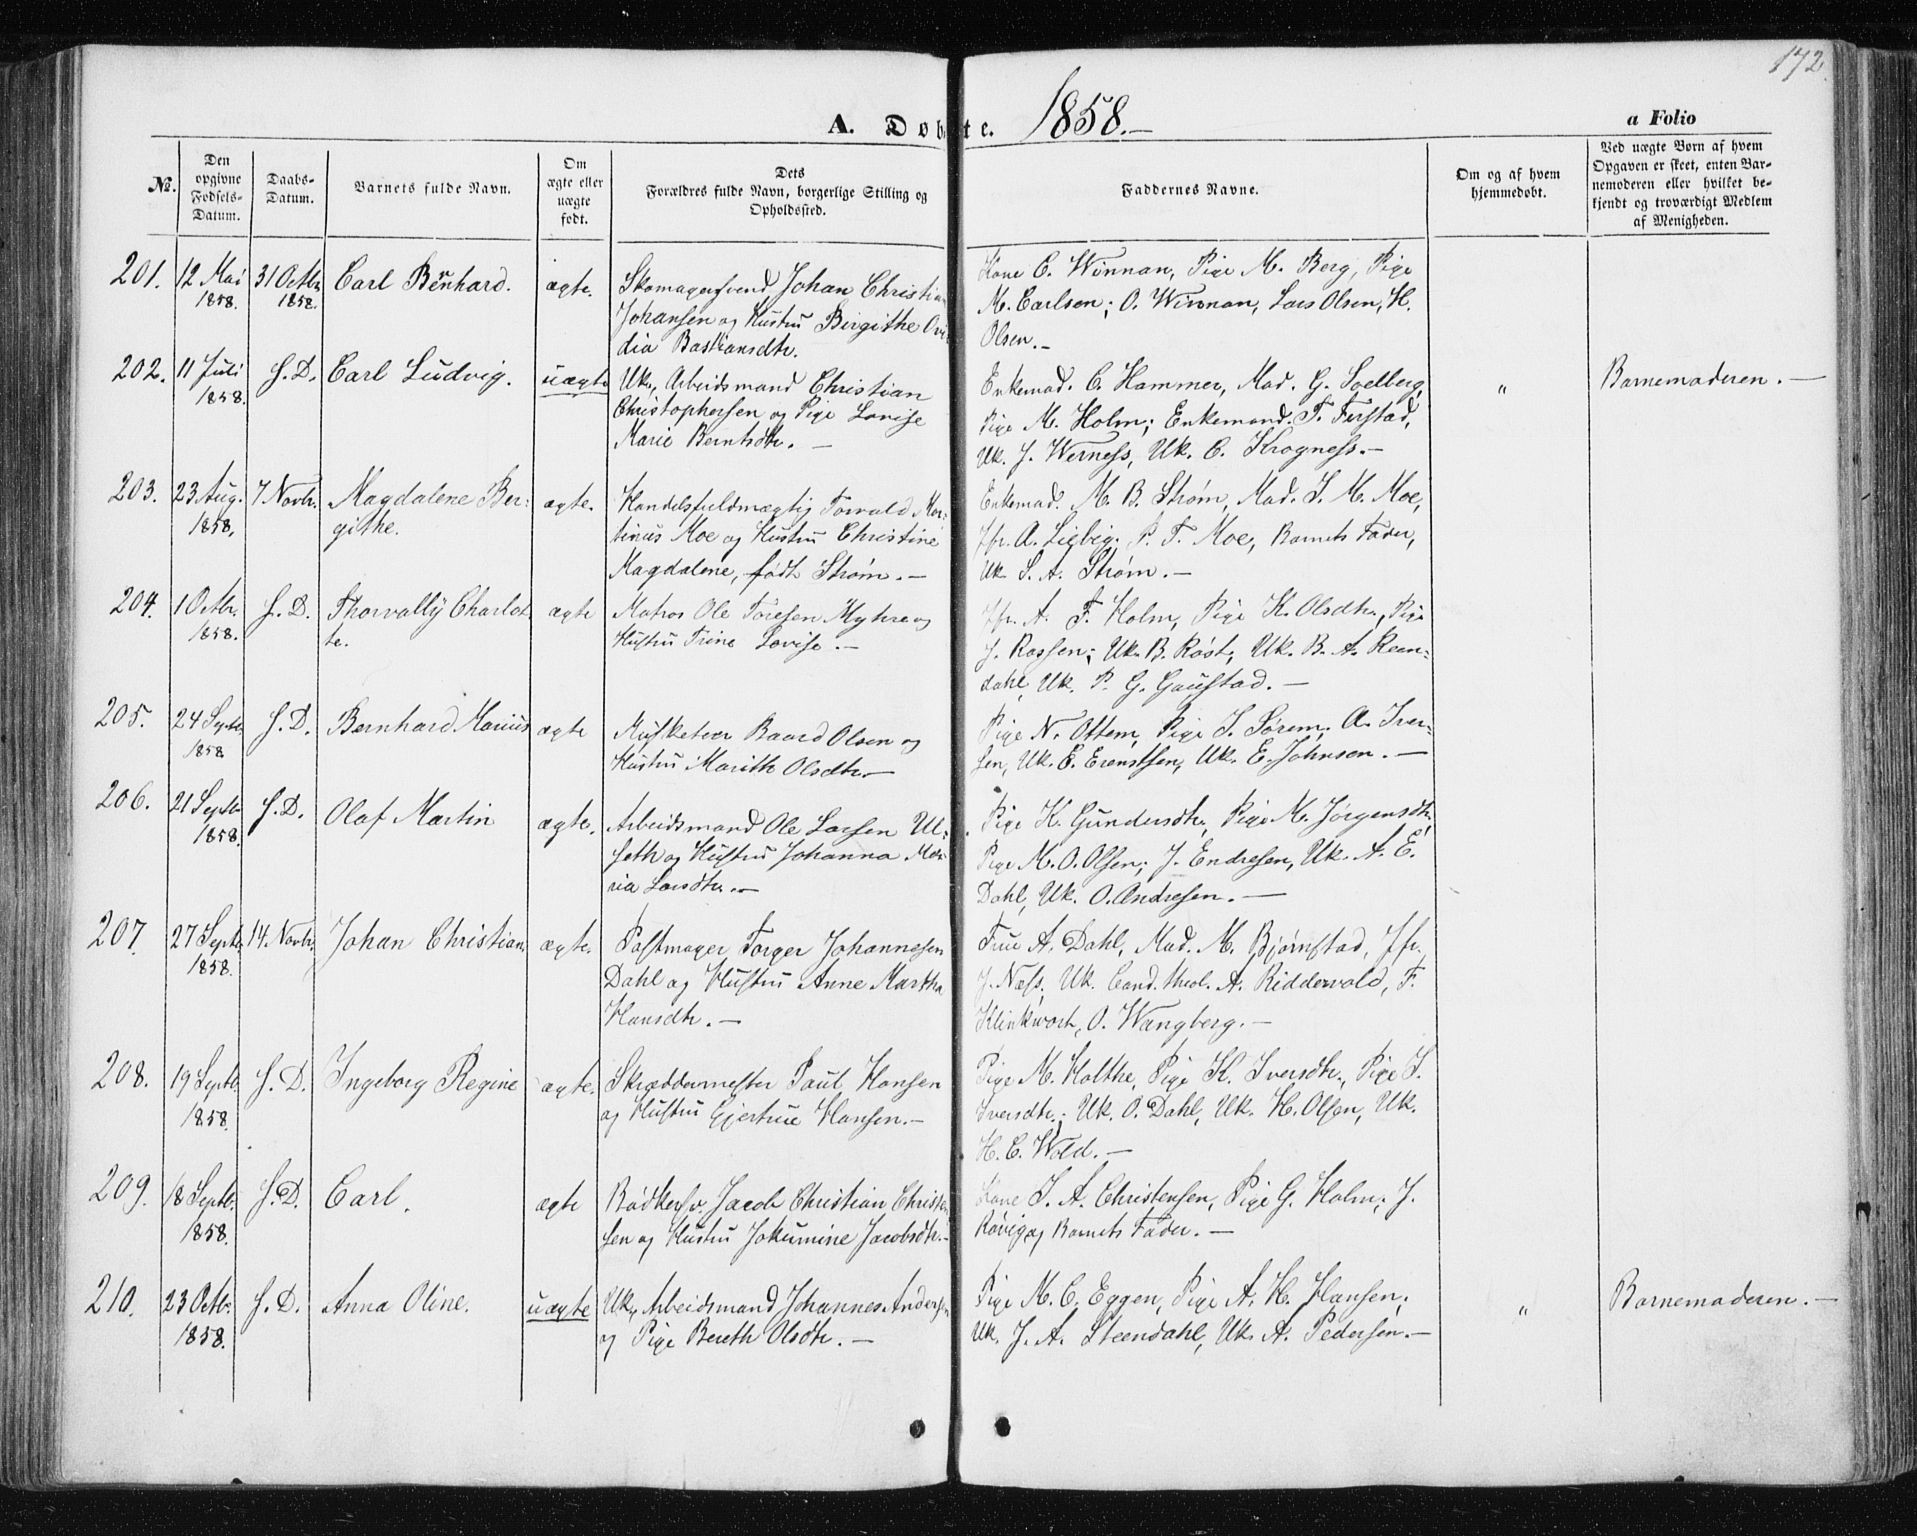 172.
A. Døbte. 1858.—
a Folio
No.
Den opgivne Fødsels-Datum.
Daabs-Datum.
Barnets fulde Navn.
Om ægte eller uægte født.
Dets Forældres fulde Navn, borgerlige Stilling og Opholdssted.
Faddernes Navne.
Om og af hvem hjemmedøbt.
Ved uægte Børn af hvem Opgaven er skeet, enten Barnemoderen eller hvilket bekjendt og troværdigt Medlem af Menigheden.
201. 12 Mai 1858. 31 Octbr. 1858. Carl Bernhard. ægte.
Skomagersvend Johan Christian
Johansen og Hustru Birgithe Ovi
dia Bastiansdtr.
Kone C. Winnan, Pige M. Berg, Pige
M. Carlsen; O. Winnan, Lars Olsen, H.
Olsen.—
202. 11 Juli 1858. S. D. Carl Ludvig. uægte
Uk, Arbeidsmand Christian
Christophersen og Pige Lovise
Marie Berntsdtr.—
Enkemad. C. Hammer, Mad. G. Soelberg,
Pige M. Holm; Enkemand. T. Firstad,
Uk. J. Werness, Uk. C. Krogness.—
"
Barnemoderen.—
203. 23 Aug. 1858. 7 Novbr. Magdalene Ber-
githe. ægte.
Handelsfuldmægtig Torvald Mar-
tinus Moe og Hustru Christine
Magdalene, født Strøm.—
Enkemad. M. B. Strøm, Mad. S. M. Moe,
Jfr. A. Liebig; P. T. Moe, Barnets Fader,
Uk. S. A. Strøm.—
204. 1 Octbr. 1858. S. D. Thorvally Charlot-
te. ægte
Matros Ole Toresen Myhre og
Hustru Trine Lovise.—
Jfr. A. F. Holm, Pige K. Olsdtr., Pige
J. Rossen; Uk. B. Röst, Uk. B. A. Reen-
dahl, Uk. P. G. Gaustad.—
205. 24 Septbr. 1858 S. D. Bernhard Marius ægte
Musketeer Baard Olsen og
Hustru Marith Olsdtr.—
Pige N. Ottem, Pige S. Sørem; A. Iver-
sen, Uk. E. Erenstsen, Uk. E. Johnsen.—
206. 21 Septbr. 1858. S. D. Olaf Martin ægte.
Arbeidsmand Ole Larsen Ul-
seth og Hustru Johanna Ma-
ria Larsdtr.—
Pige K. Gundersdtr., Pige M. Jørgensdtr.
Pige M. O. Olsen; J. Endresen, Uk. A. E.
Dahl, Uk. O. Andresen.—
207. 27 Septbr. 1858. 14. Novbr. Johan Christian. ægte.
Postmager Torger Johannesen
Dahl og Hustru Anne Martha
Hansdtr.—
Frue A. Dahl, Mad. M. Bjørnstad, Jfr.
J. Næss, Uk. Cand. theol. A. Riddervold, F.
Klinkwort, O. Wangberg.—
208. 19 Septb. 1858. S. D. Ingeborg Regine ægte.
Skræddermester Paul Hansen
og Hustru Gjertrue Hansen.—
Pige M. Holthe, Pige K. Iversdtr., Pige I.
Iversdtr.; Uk. O. Dahl, Uk. H. Olsen, Uk.
H. C. Wold.—
209. 18 Septbr. 1858. S. D. Carl. ægte
Bødkersv. Jacob Christian Christen-
sen og Hustru Jokumine Jacobsdtr.—
Kone I. A. Christensen, Pige G. Holm; J.
Røvig og Barnets Fader.—
210. 23 Octbr. 1858. S. D. Anna Oline. uægte
Uk, Arbeidsmand Johannes Andersen
og Pige Bereth Olsdtr.—
Pige M. C. Eggen, Pige A. H. Hansen;
Uk. J. A. Steendahl, Uk. A. Pedersen.—
"
Barnemoderen.—